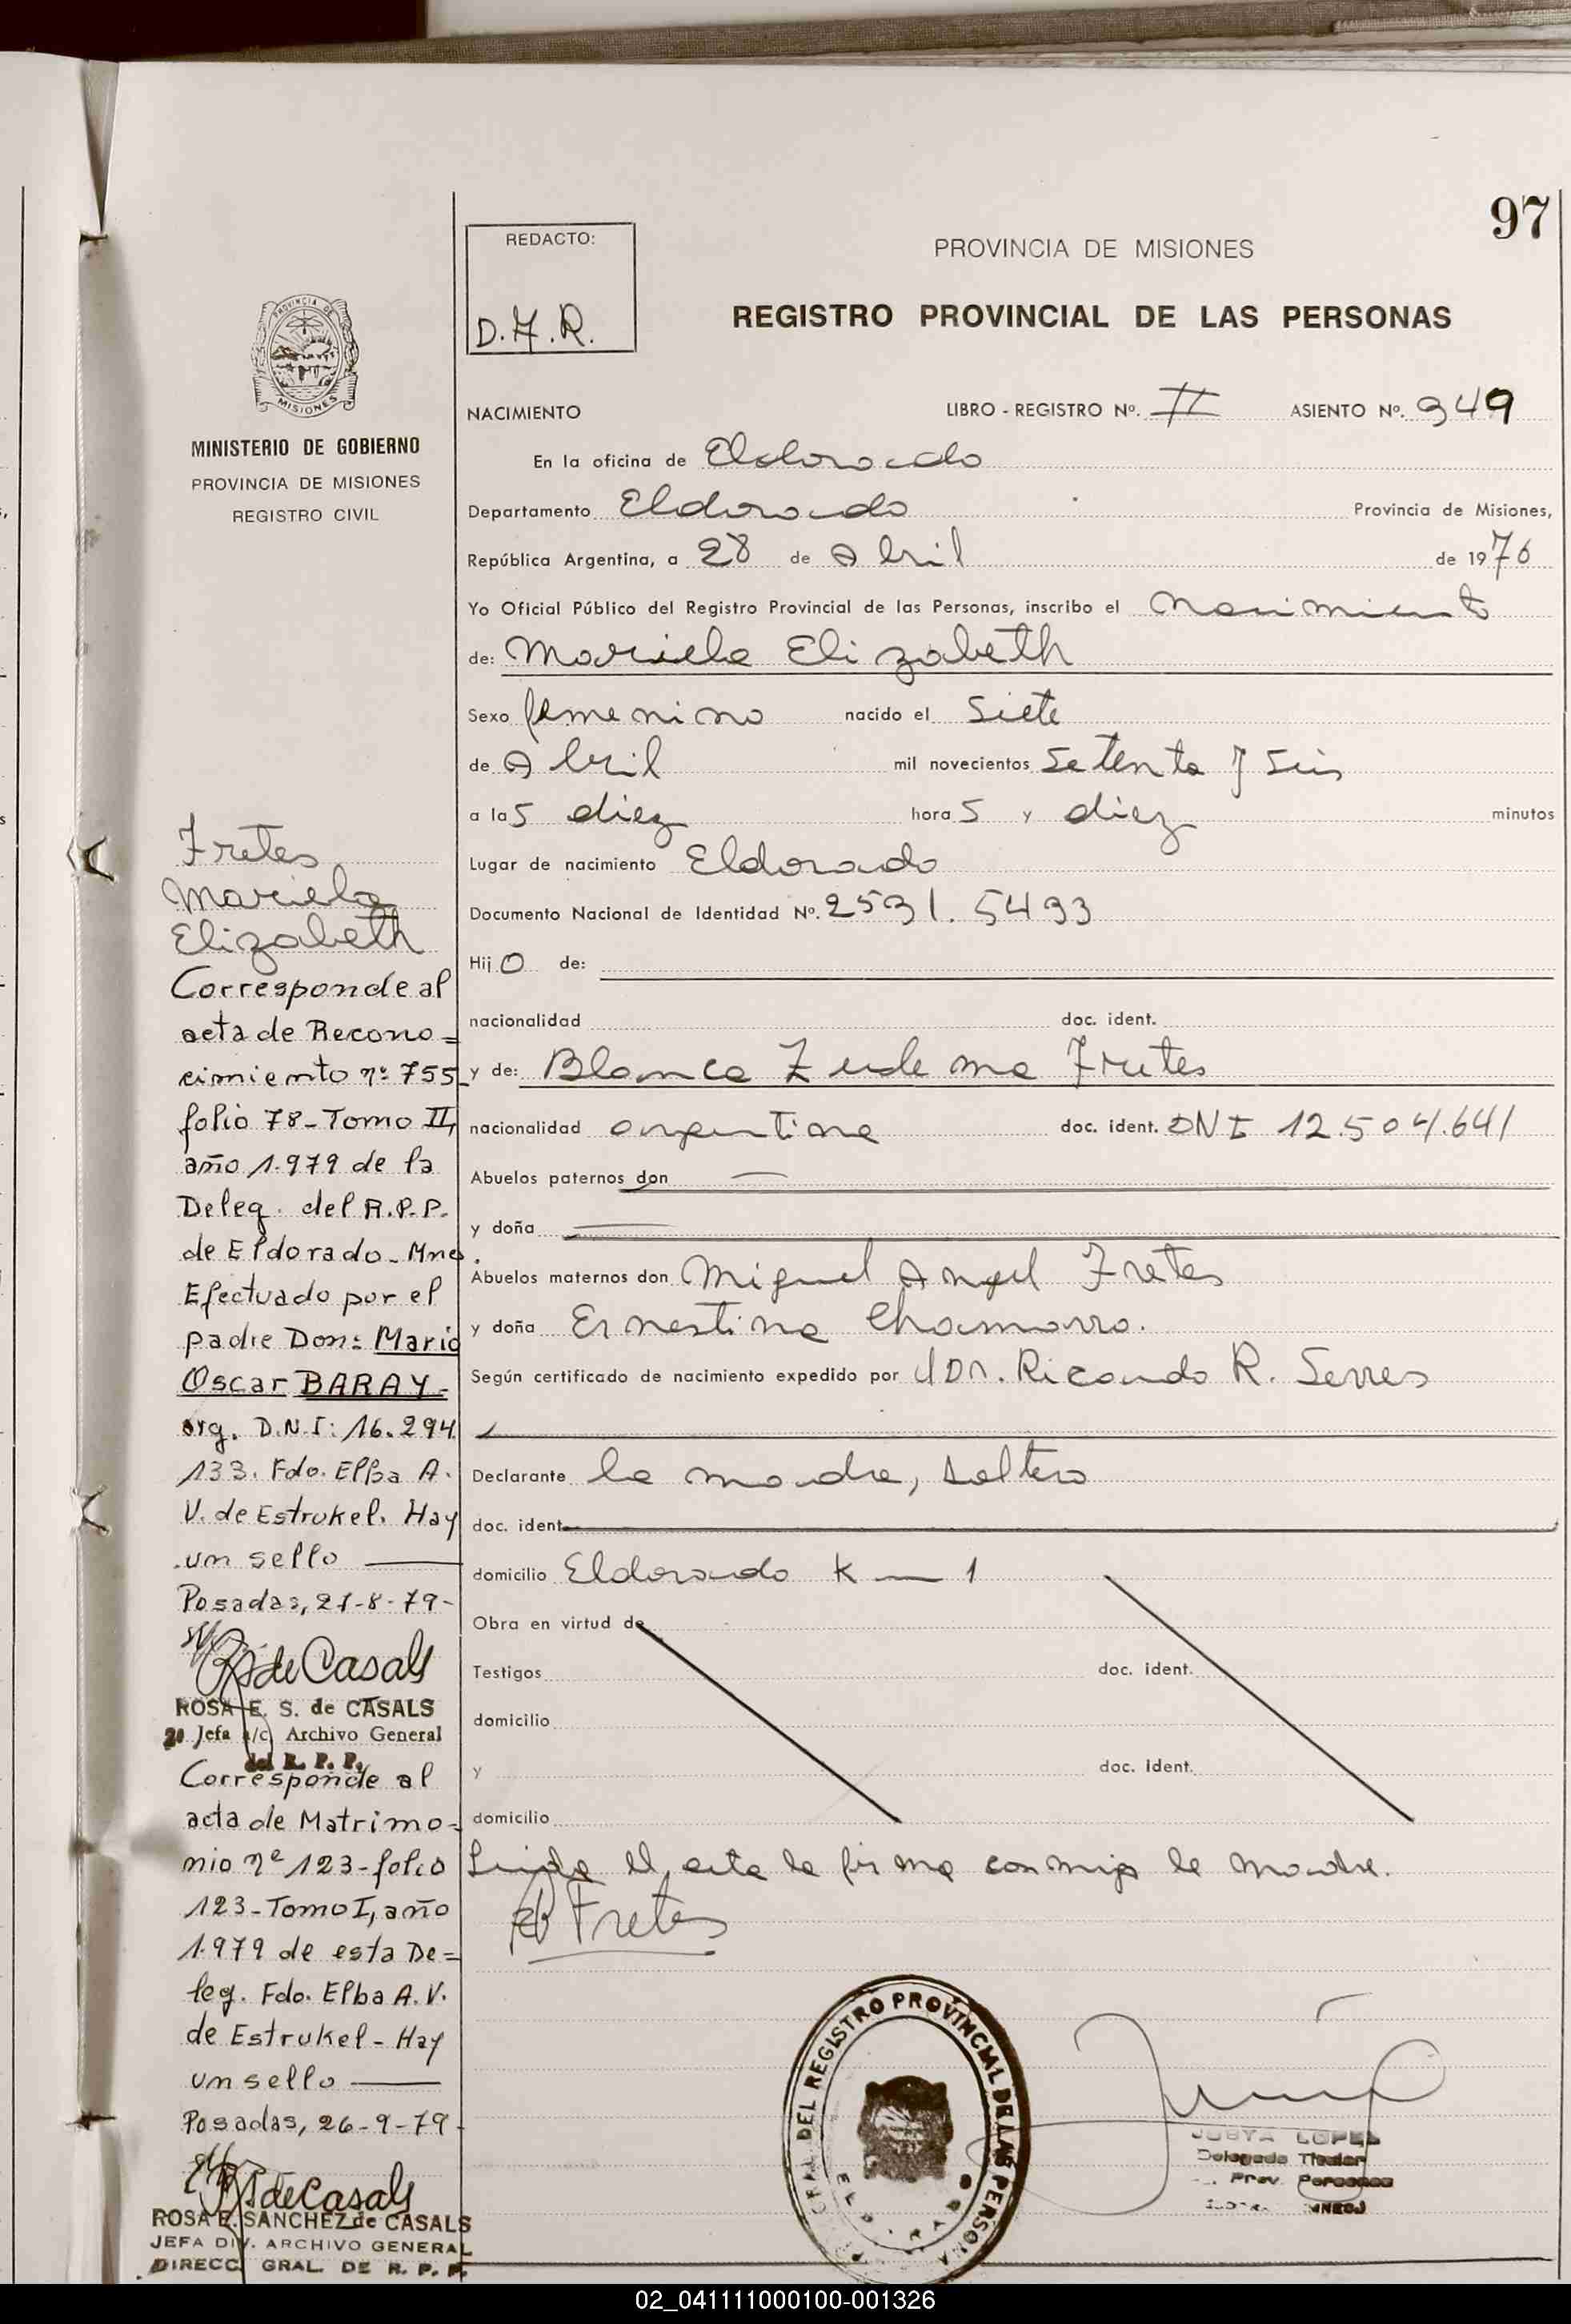 97
REDACTO:
D.A.R.
PROVINCIA DE MISIONES
REGISTRO PROVINCIAL DE LAS PERSONAS
PROVINCIA DE
MISIONES
MINISTERIO DE GOBIERNO
PROVINCIA DE MISIONES
REGISTRO CIVIL
Fretes
Mariela
Elizabeth
Corresponde al
acta de Recono=
cimiento nº 755
folio 78-Tomo II,
año 1.979 de la
Deleg. del R.P.P.
de Eldorado-Mnes.
Efectuado por el
padre Don: Mario
Oscar BARAY-
arg. D.N.I: 16.294
133. Fdo. Elba A.
V. de Estrukel. Hay
un sello
Posadas, 21-8-79-
RS de Casals
ROSA E. S. de CASALS
Jefa a/c Archivo General
del R. P. P.
Corresponde al
acta de Matrimo=
nio nº 123-folio
123-Tomo I, año
1.979 de esta De=
leg. Fdo. Elba A.V.
de Estrukel-Hay
un sello
Posadas, 26-9-79
RS de Casals
ROSA E. SANCHEZ de CASALS
JEFA DIV. ARCHIVO GENERAL
DIRECC. GRAL. DE R. P. P.
NACIMIENTO LIBRO - REGISTRO Nº. II ASIENTO Nº. 949
En la oficina de Eldorado
Departamento Eldorado Provincia de Misiones,
República Argentina, a 28 de Abril de 1976
Yo Oficial Público del Registro Provincial de las Personas, inscribo el Nacimiento
de: Mariela Elizabeth
Sexo femenino nacido el Siete
de Abril mil novecientos Setenta y Seis
a las diez horas y diez minutos
Lugar de nacimiento Eldorado
Documento Nacional de Identidad Nº. 2531.5493
Hijo de:
nacionalidad doc. ident.
y de: Blanca Zulema Fretes
nacionalidad argentina doc. ident. DNI 12.504.641
Abuelos paternos don —
y doña —
Abuelos maternos don Miguel Angel Fretes
y doña Ernestina Chamorro.
Según certificado de nacimiento expedido por Dr. Ricardo R. Serres
Declarante la madre, soltera
doc. ident.
domicilio Eldorado K — 1
Obra en virtud de
Testigos doc. ident.
domicilio
y doc. ident.
domicilio
Leida el acta la firma conmigo la madre.
Fretes
GRAL DEL REGISTRO PROVINCIAL DE LAS PERSONA
LOPEZ
Delegada Titular
Prov. Personas
02_041111000100-001326